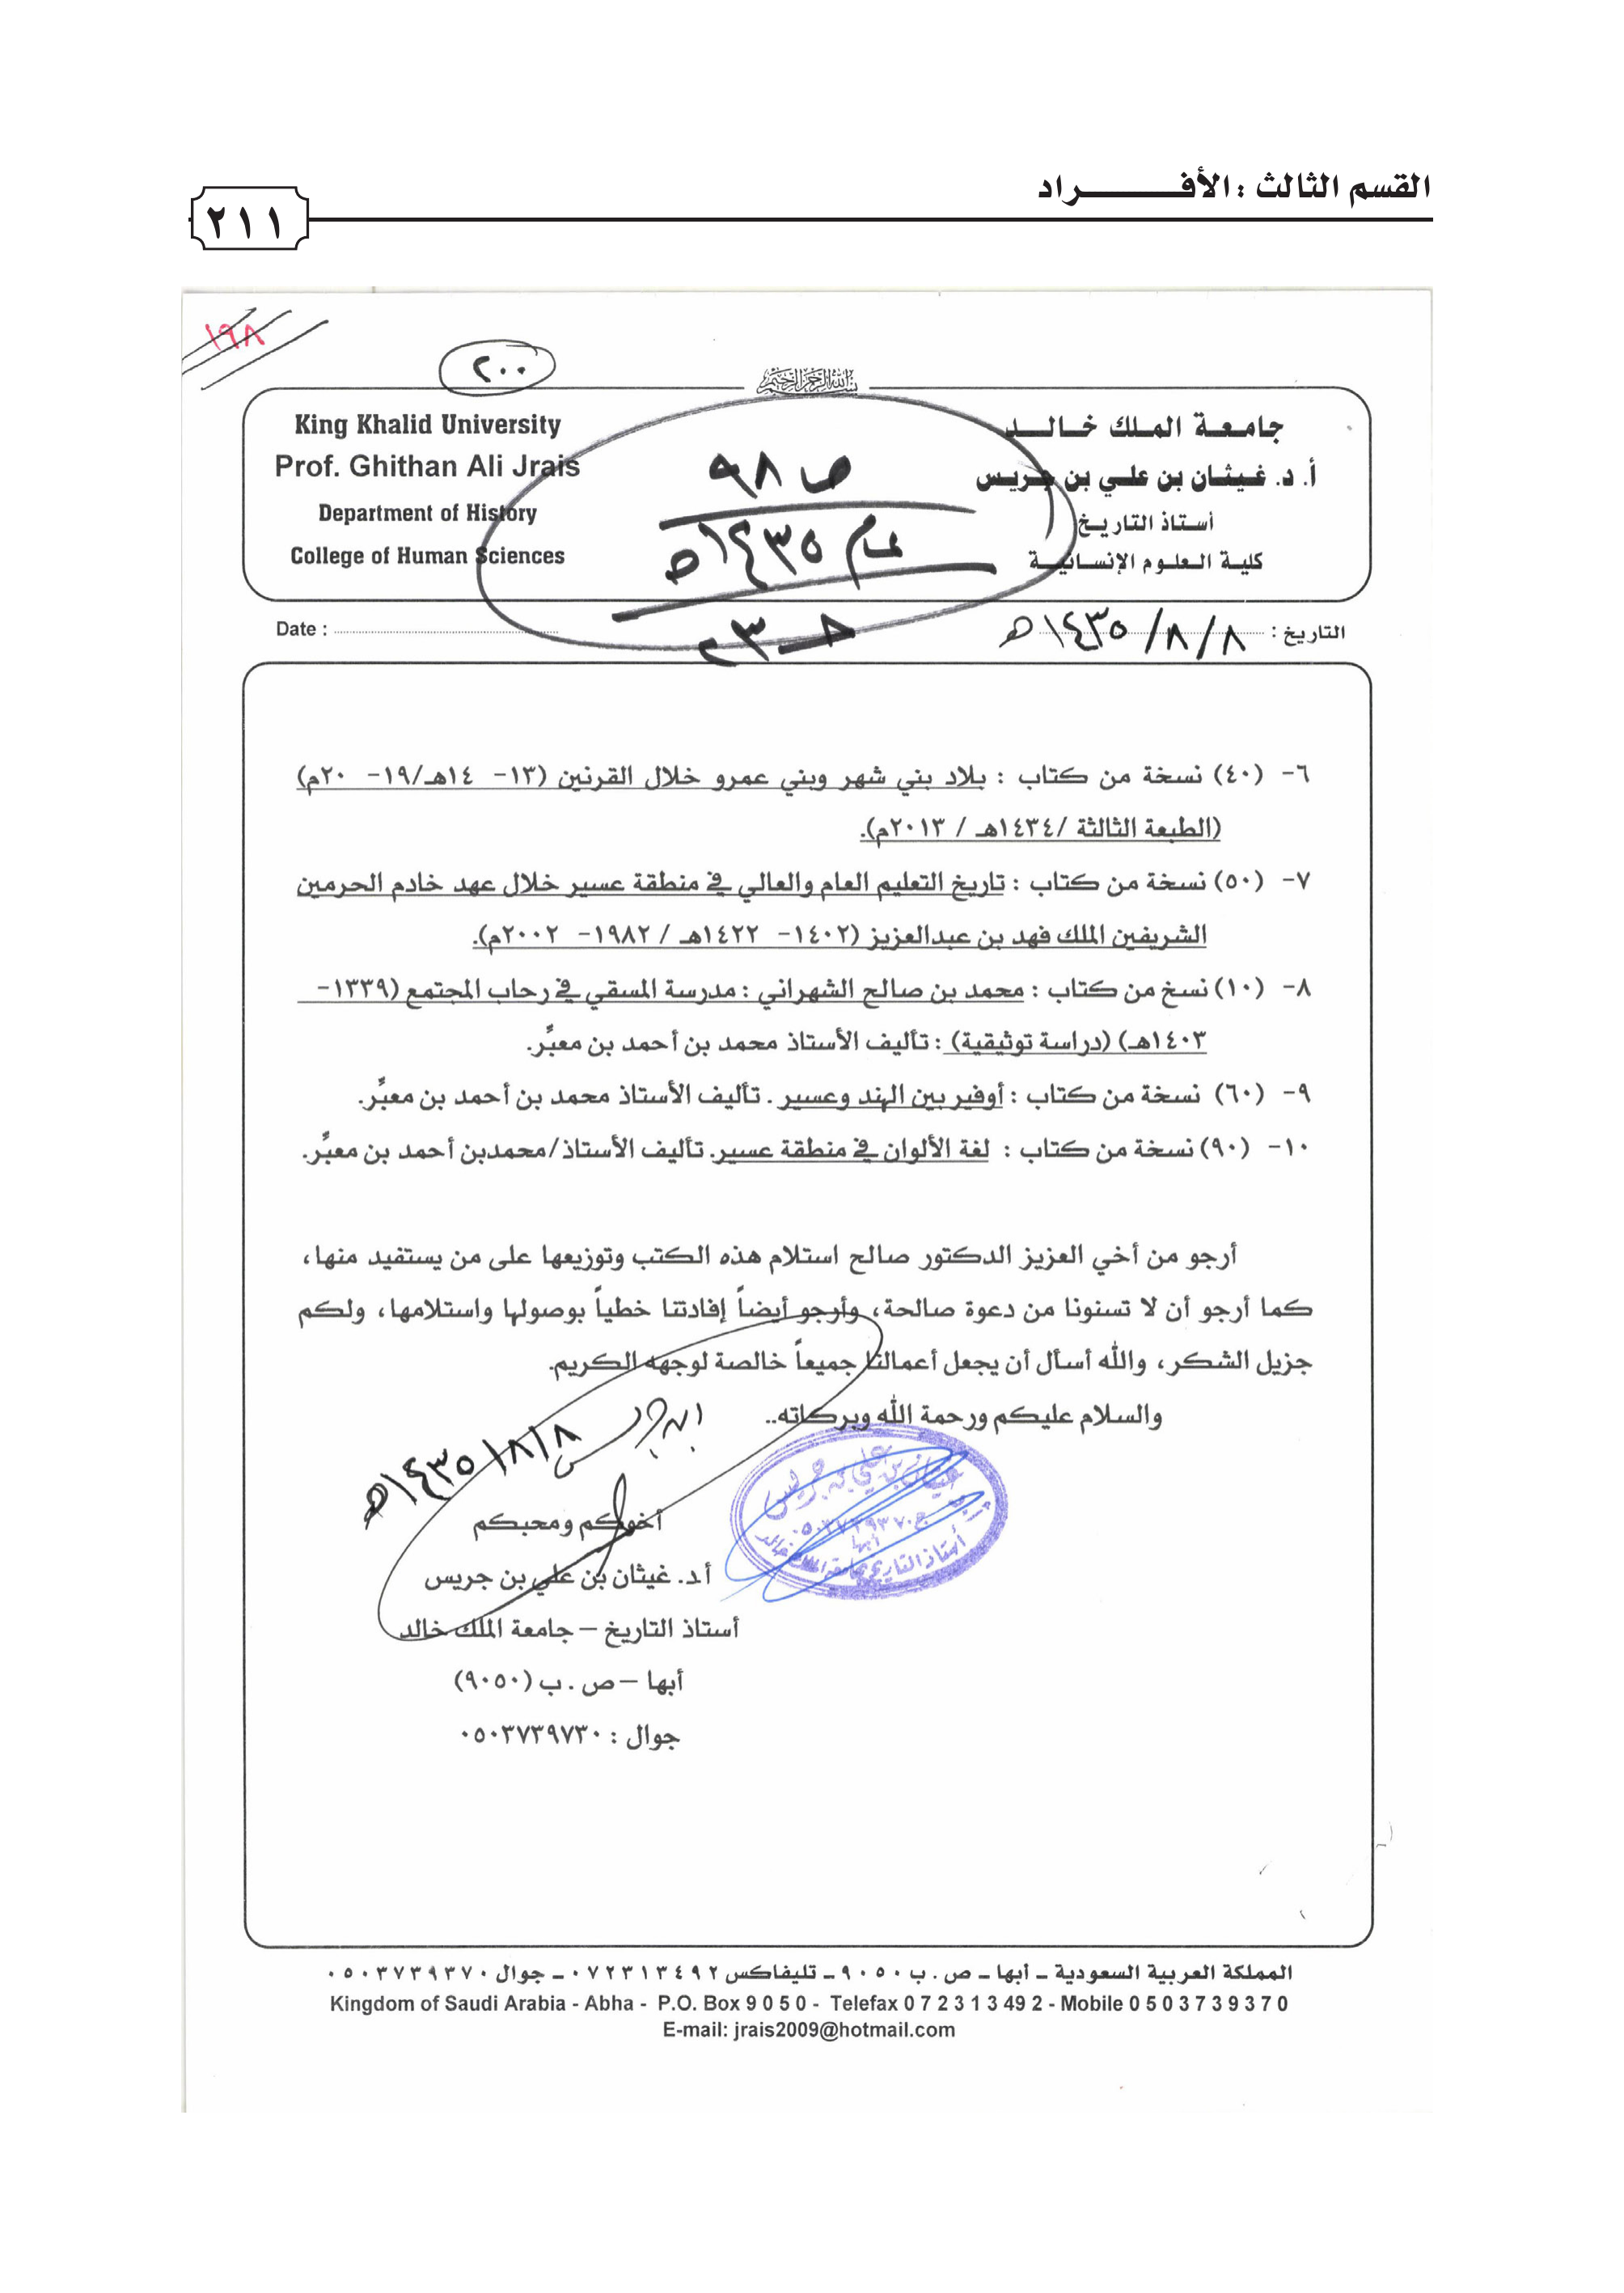 القسم الثالث : الأفـــــــــراد
٢١١
١٩٨
٢٠٠
King Khalid University
Prof. Ghithan Ali Jrais
Department of History
College of Human Sciences
جامعـة الملك خالـد
أ. د. غيثـان بن علـي بن جريـس
أستـاذ التاريـخ
كليـة العلـوم الإنسـانيـة
ص ٩٨
عام ١٤٣٥هـ
Date :
التاريخ : ٨ / ٨ / ١٤٣٥هـ
٦- (٤٠) نسخة من كتاب : بلاد بني شهر وبني عمرو خلال القرنين (١٣- ١٤هـ/١٩- ٢٠م)
(الطبعة الثالثة /١٤٣٤هـ / ٢٠١٣م).
٧- (٥٠) نسخة من كتاب : تاريخ التعليم العام والعالي في منطقة عسير خلال عهد خادم الحرمين
الشريفين الملك فهد بن عبدالعزيز (١٤٠٢- ١٤٢٢هـ / ١٩٨٢- ٢٠٠٢م).
٨- (١٠) نسخ من كتاب : محمد بن صالح الشهراني : مدرسة المسقي في رحاب المجتمع (١٣٣٩-
١٤٠٣هـ) (دراسة توثيقية) : تأليف الأستاذ محمد بن أحمد بن معبُّر.
٩- (٦٠) نسخة من كتاب : أوفير بين الهند وعسير . تأليف الأستاذ محمد بن أحمد بن معبُّر.
١٠- (٩٠) نسخة من كتاب : لغة الألوان في منطقة عسير. تأليف الأستاذ/محمدبن أحمد بن معبُّر.
أرجو من أخي العزيز الدكتور صالح استلام هذه الكتب وتوزيعها على من يستفيد منها،
كما أرجو أن لا تسنونا من دعوة صالحة، وأرجو أيضاً إفادتنا خطياً بوصولها واستلامها، ولكم
جزيل الشكر، والله أسأل أن يجعل أعمالنا جميعاً خالصة لوجهه الكريم.
والسلام عليكم ورحمة الله وبركاته..
ابن جريس ٨/٨/١٤٣٥هـ
أخوكم ومحبكم
أ.د. غيثان بن علي بن جريس
أستاذ التاريخ – جامعة الملك خالد
أبها – ص . ب (٩٠٥٠)
جوال : ٠٥٠٣٧٣٩٧٣٠
المملكة العربية السعودية ـ أبها ـ ص . ب ٩٠٥٠ ـ تليفاكس ٠٧٢٣١٣٤٩٢ ـ جوال ٠٥٠٣٧٣٩٣٧٠
Kingdom of Saudi Arabia - Abha - P.O. Box 9 0 5 0 - Telefax 0 7 2 3 1 3 49 2 - Mobile 0 5 0 3 7 3 9 3 7 0
E-mail: jrais2009@hotmail.com